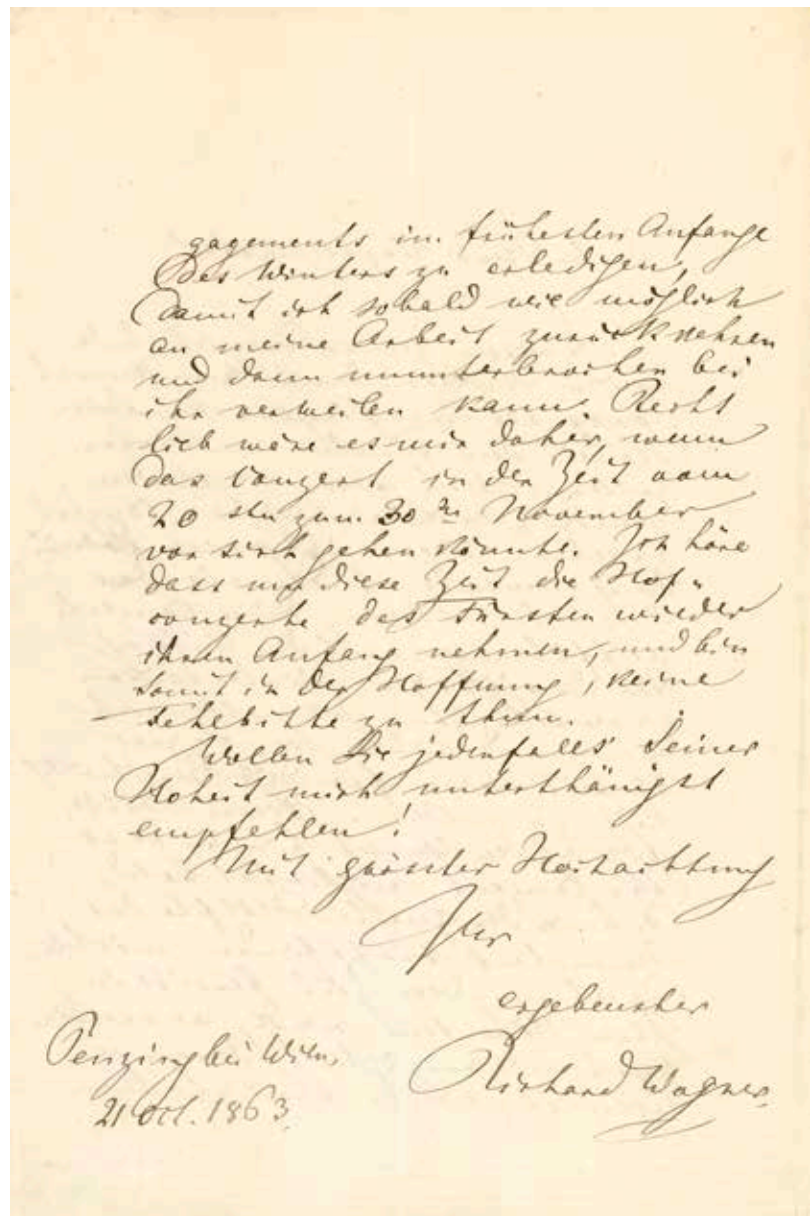 gagements im frühesten Anfange
des Winters zu erledigen,
damit ich sobald wie möglich
an meine Arbeit zurückkehren
und dann ununterbrochen bei
ihr verweilen kann. Recht
lieb wäre es mir daher, wenn
das Conzert in der Zeit vom
20 sten zum 30 ten November
vor sich gehen könnte. Ich höre
dass um diese Zeit die Hof-
conzerte des Fürsten wieder
ihren Anfang nehmen, und bin
somit in der Hoffnung, keine
Fehlbitte zu thun.
Wollen Sie jedenfalls Seiner
Hoheit mich unterthänigst
empfehlen!
Mit grösster Hochachtung
Ihr
ergebenster
Richard Wagner.
Penzing bei Wien.
21 Oct. 1863.